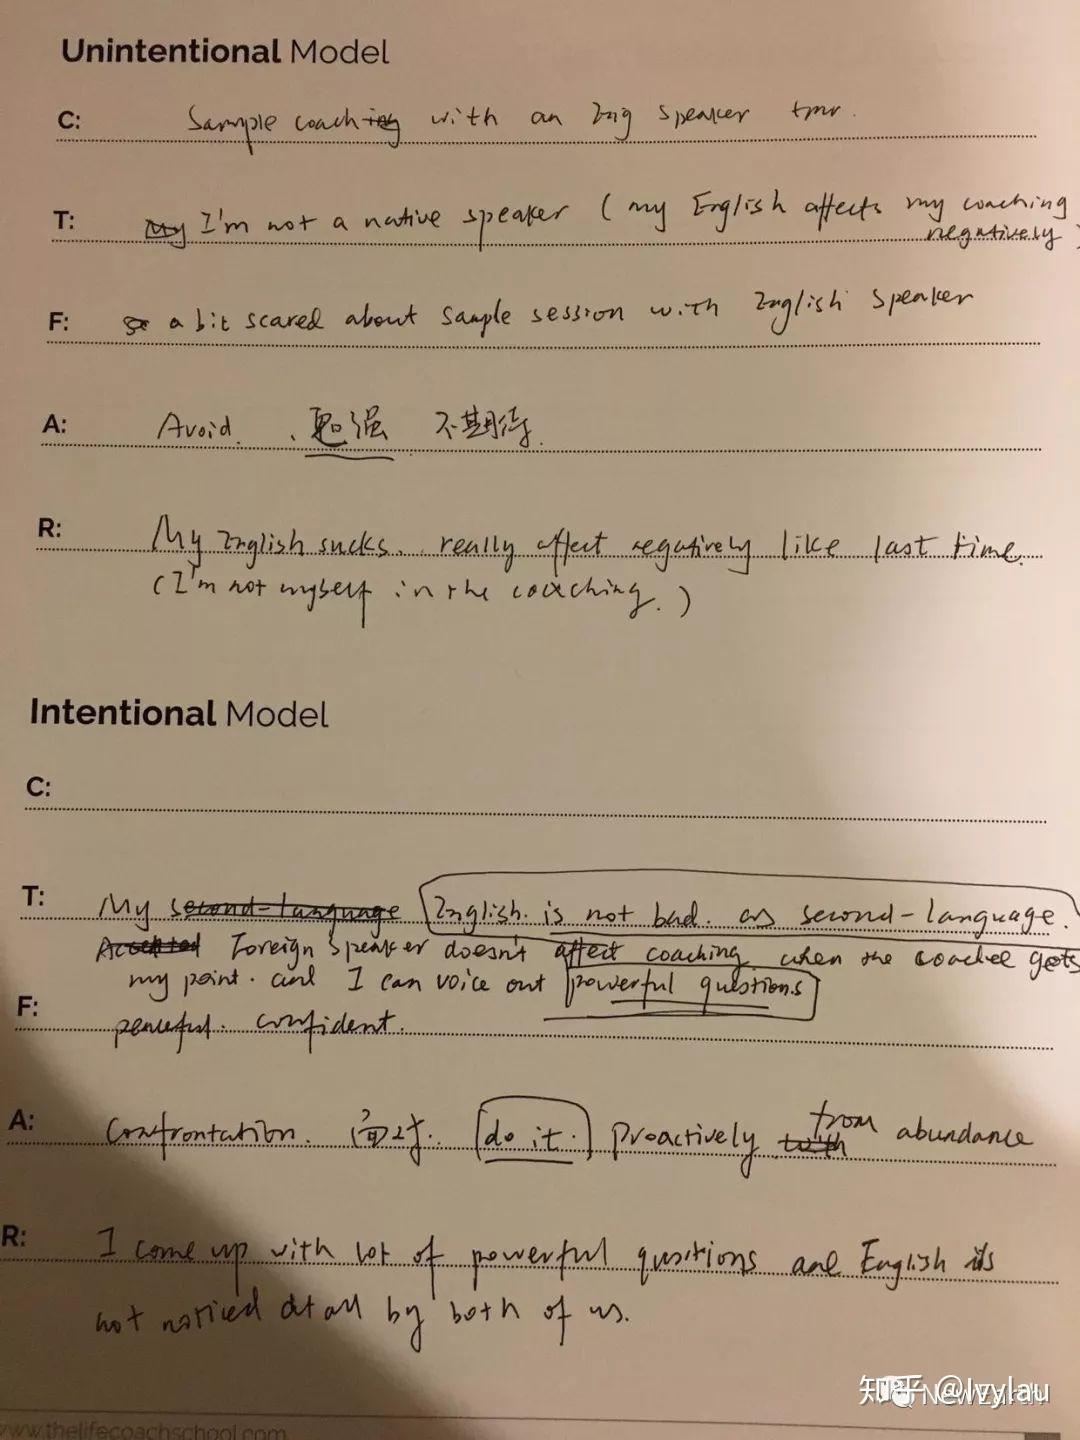 Unintentional Model
C: Sample coaching with an Eng speaker tmr.
T: My I'm not a native speaker (my English affects my coaching
negatively)
F: a bit scared about sample session with English speaker
A: Avoid. 、勉强 不期待.
R: My English sucks. really affect negatively like last time.
(I'm not myself in the coaching.)
Intentional Model
C:
T: My second-language English is not bad. as second-language.
Accented Foreign speaker doesn't affect coaching when the coachee gets
my point. and I can voice out powerful questions
F: peaceful. confident.
A: Confrontation. 面对. do it. Proactively with from abundance
R: I come up with lot of powerful qusitions and English is
not noticed at all by both of us.
知乎 @Ivylau
www.thelifecoachschool.com